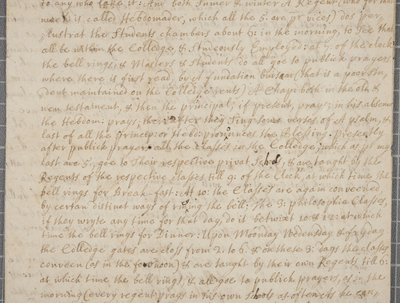 to any who take it: And both Summer & winter A Regent, who for that
week is called Hebdomader, which all the 5: are per vices) does per,
lustrat the Students chambers about 6: in the morning, to see that
all be within the Colledge & studeously Employed: at 7 of the clock
the bell rings, & Masters & Students do all goe to publick prayers,
where there is first read, by a foundation bursar (that is a poor Stu,
dent maintained on the Colledge rents) A Chapt: both in the old &
new testament, & then the principall, if present, prays; in his absence
the Hebdom: prays, then after they Sing some verses of A psalm, &
last of all the Princip: or Hebdom: pronunces the blessing. Presently
after publick prayer all the Classes in the Colledge, which as
last are 5: goe to their respective privat Schols, & are taught by the
Regents of the respective classes till 9: of the Clock at which time the
bell rings for Break-fast: At 10: the Classes are again conveened
by certan distinct ways of ringing the bell; The 3: philosophie Classes,
if they wryte any time for that day, do it betwixt 10: & 12: at which
time the bell rings for Dinner: Upon Monday Wedensday & Fryday
the Colledge gates are closs from 2: to 6: & on these 3: days the classes
conveen (as in the forenoon) & are taught by their own Regents till 6:
at which time the bell rings, & all goe to publick prayers, as in the
morning (every regent prays in his own Schole as often as he can,